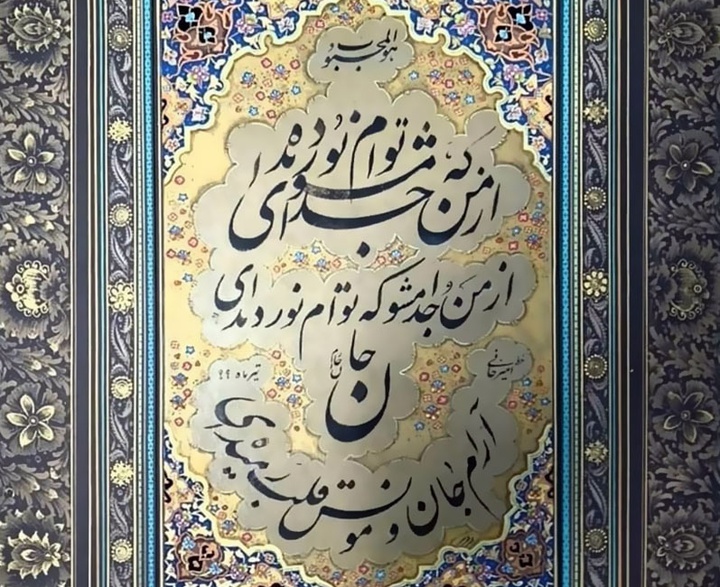 هوالمحبوب
از من جدا مشو که توام نور دیده‌ای
از من جدا مشو که توام نور دیده‌ای
جان
تیرماه ۹۹
آرام جان و مونس قلب رمیده‌ای